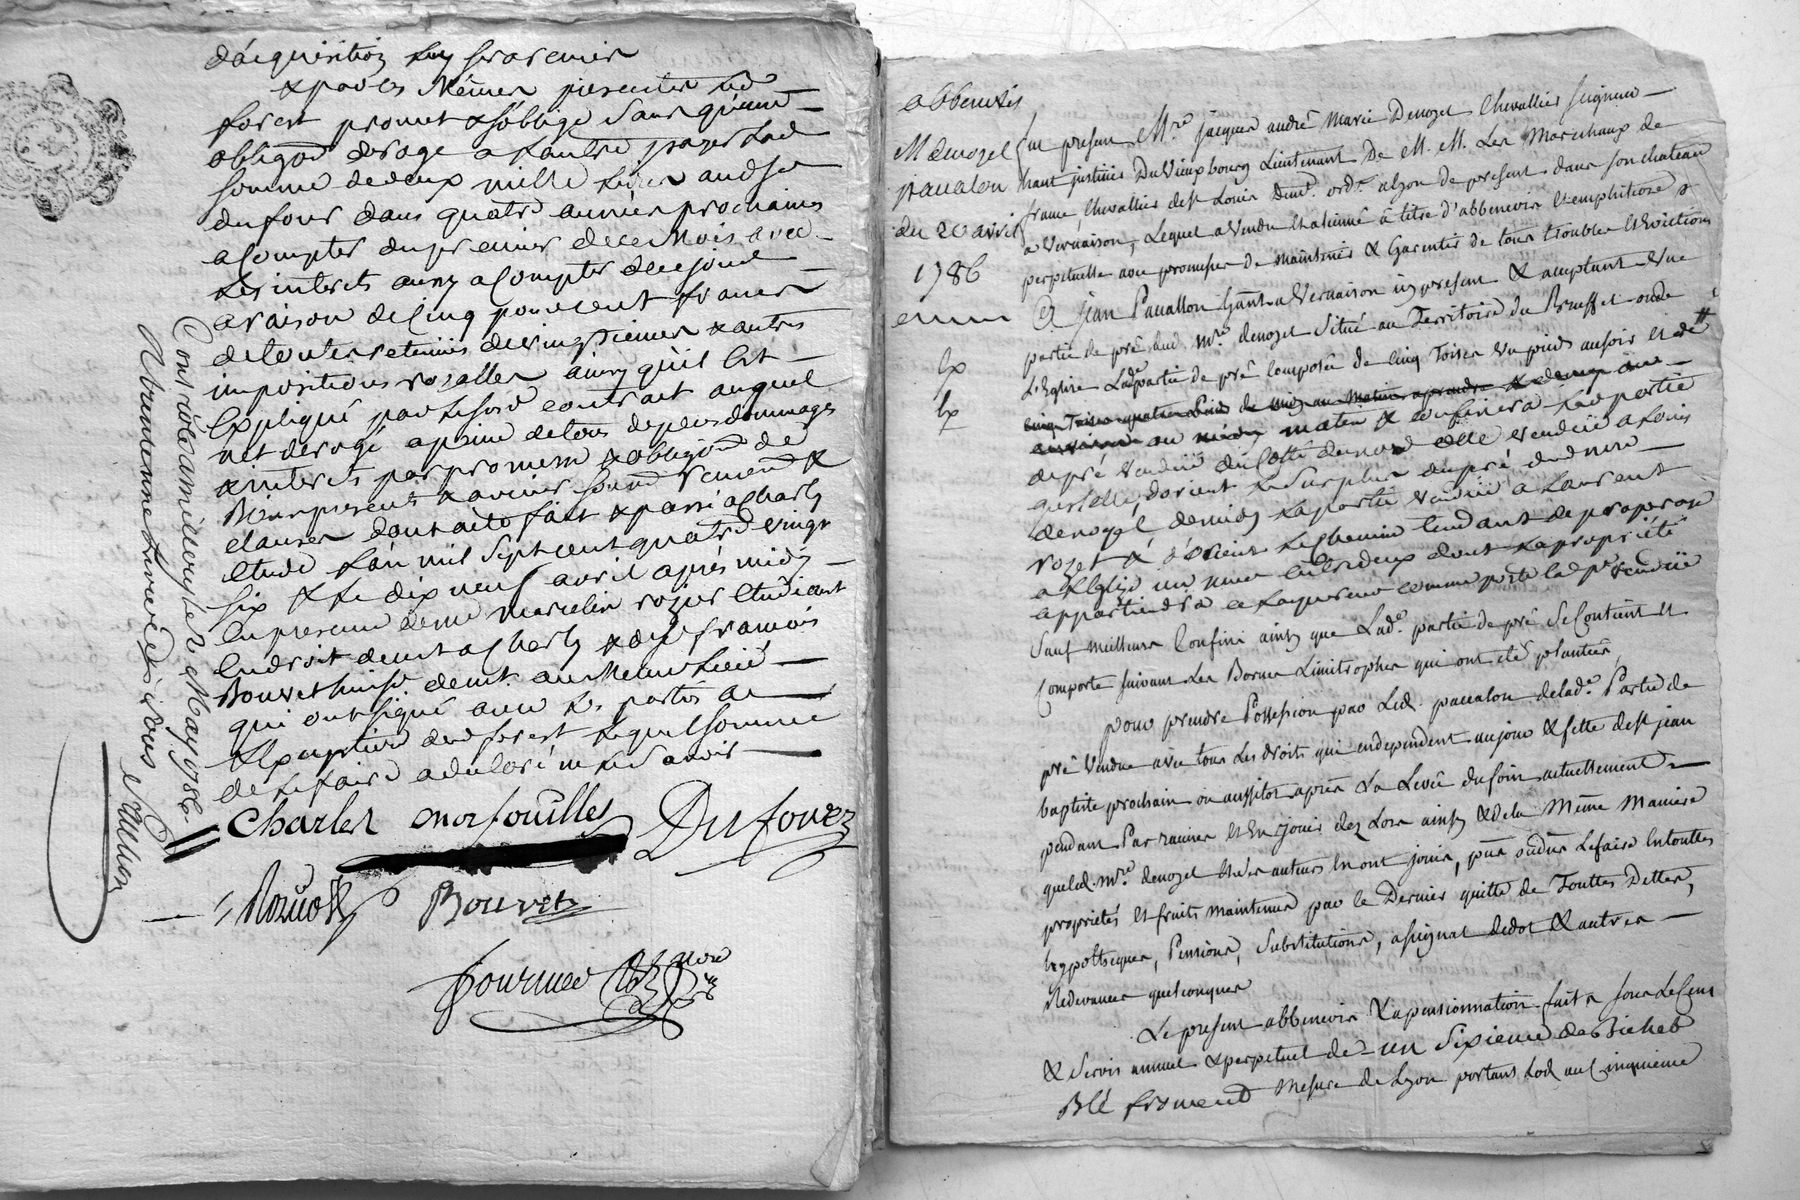 d'acquisition luy fera remir
& par ces mêmes presentes led
forest promet & s'oblige sans qu'une
obligaõn deroge a l'autre payer lad
somme de deux mille livres aud sr
dufour dans quatre années prochaines
a compter du premier de ce mois avec
les interets aussy a compter de ce jour
a raison de cinq pour cent francs
de toutes retenües de vingtiemes & autres
impositions royalles ainsy qu'il est
expliqué par le susd contrat auquel
n'est derogé a peine de tous depens dommages
& interets par promesse & obligaõn de
Biens presents & avenir soumõn renonõn &
clauses dont acte fait & passé a Charly
etude l'an mil sept cent quatre vingt
six & le dix neuf avril après midy
en presence de me marcelin rozier etudiant
en droit demt a Charly & de sr françois
Bouvet huissr demt au meme lieu
qui ont signé avec les parties a
l'exception dud forest lequel somme
de le faire a declaré ne le savoir
Charles morfouilles Dufour
Bouvet
fournier
Controlé a millery le 2 May 1786
abbenevis
M denozel
pavalon
du 20 avril
1786
Fut present Mre jacques andré Marie Denozel Chevallier seigneur
haut justicier Du Vieux bourg Lieutenant De M. M. Les Marechaux de
france Chevallier de st Louis demt ordt a lyon de present dans son chateau
a Vernaison, Lequel a Vendu & aliené à titre d'abbenevis & emphiteose
perpetuelle avec promesse de maintenir & Garentir de tous troubles & evictions
A jean Pavallon habt a Vernaison icy present & acceptant une
partie de pré dud. Mre denozel Situé au Territoire du Brusset ou de
L'Eglise Lade partie de pré composée de cinq Toises un pieds au soir et de
cinq Toises quatre Pieds
au matin & confinera la portie
de pré vendüe du Côté de nord celle vendüe a Louis
d'orient le surplus du pré dud mre
denozel de midy la partie vendüe a Laurent
rozet & d'occident le chemin tendant de
a l'Eglize un mur entre deux dont la propriété
appartiendra a l'acquereur comme partie lad pe vendüe
Sauf meilleurs Confins ainsy que Lade partie de pré Se Contient et
Comporte suivant Les Bornes Limitrophes qui ont été plantées,
pour prendre Possession par Led. pavalon delade Partie de
pré Vendue avec tous Les droits qui en dependent au jour & fette de st jean
baptiste prochain ou aussitot après La Levée du foin actuellement
pendant Par racines et En jouir dez Lors ainsy & de la Même Maniere
que led. Mre denozel & Ses auteurs En ont joüis, pû ou dûs Le faire En toutes
proprietés et fruits maintenus par le Dernier quitte de Touttes Dettes,
hypotheques, Pensions, Substitutions, assignat de dot & autres
Redevances quelconques
Le present abbenevis & apensionnation faits sous Le Cens
& Servis annuel & perpetuel de un Sixieme de Bichet
Blé froment mesure de Lyon portant Lod au Cinquieme